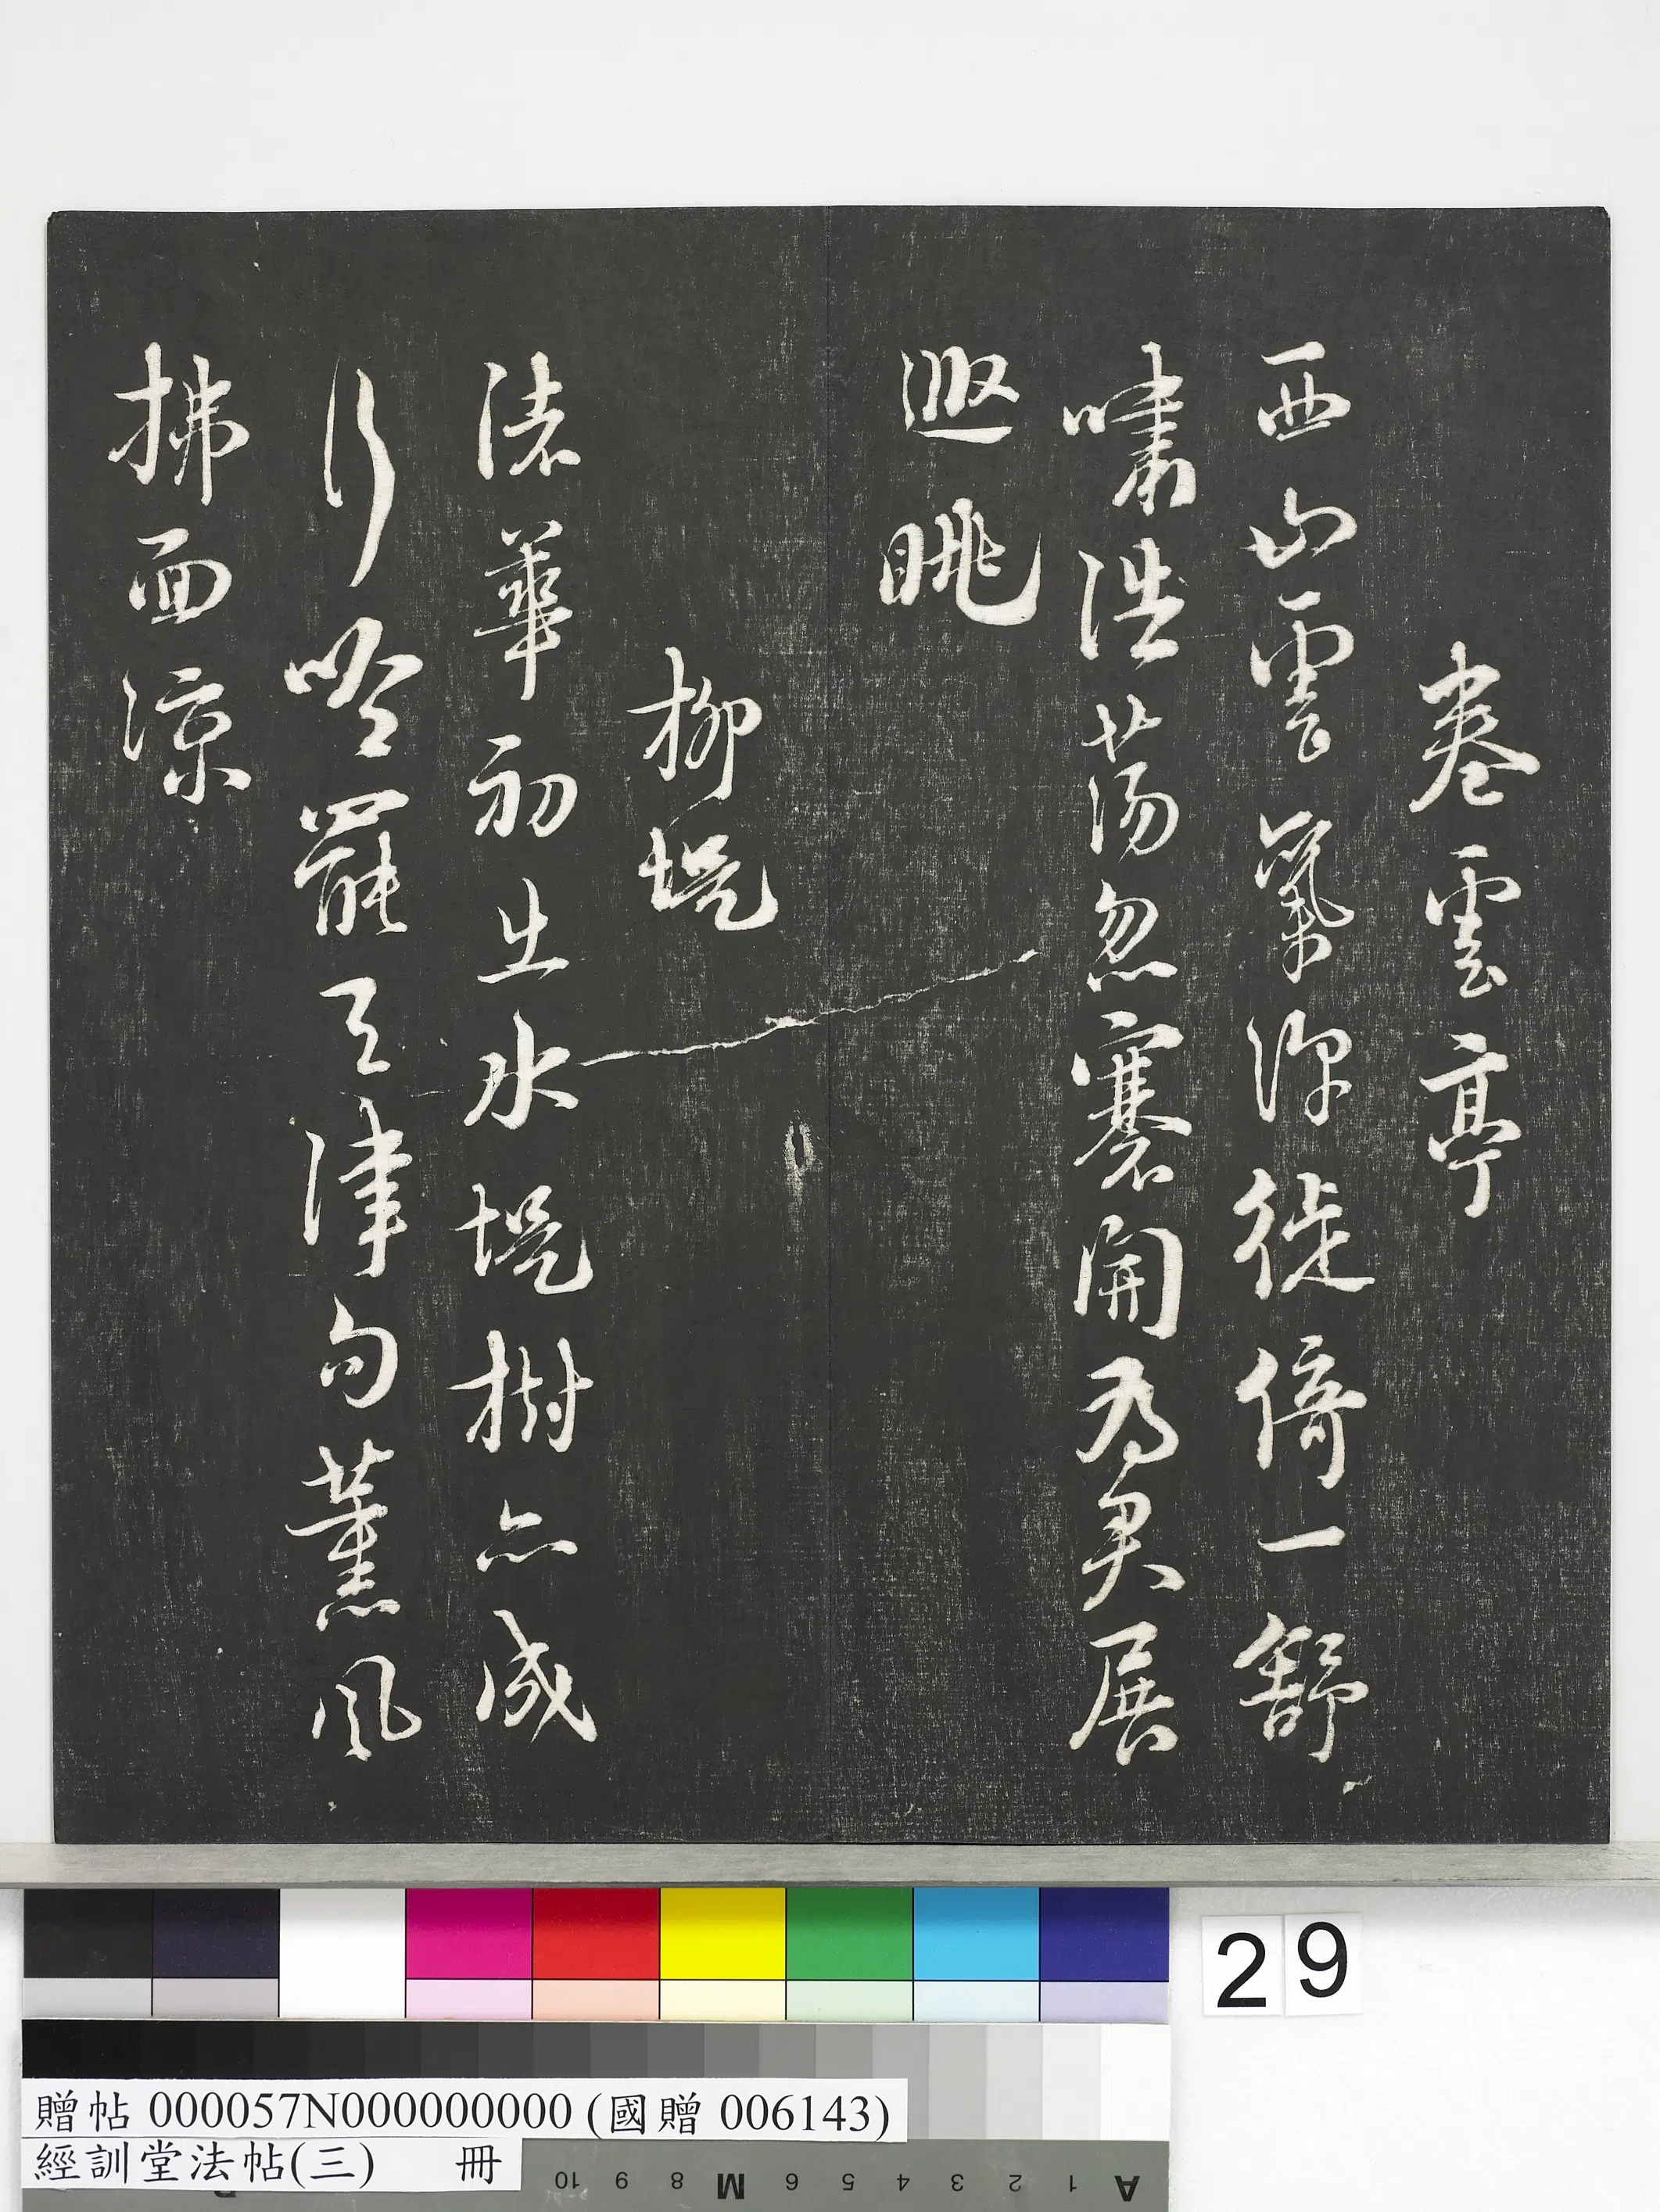 卷雲亭
西山雲氣深徙倚一舒
嘯浩蕩忽褰開為君展
遐眺
柳堤
渚華初出水堤樹亦成
行吟罷天津句薰風
拂面涼
29
贈帖 000057N000000000 (國贈 006143)
經訓堂法帖(三) 冊
A 1 2 3 4 5 6 M 8 9 10